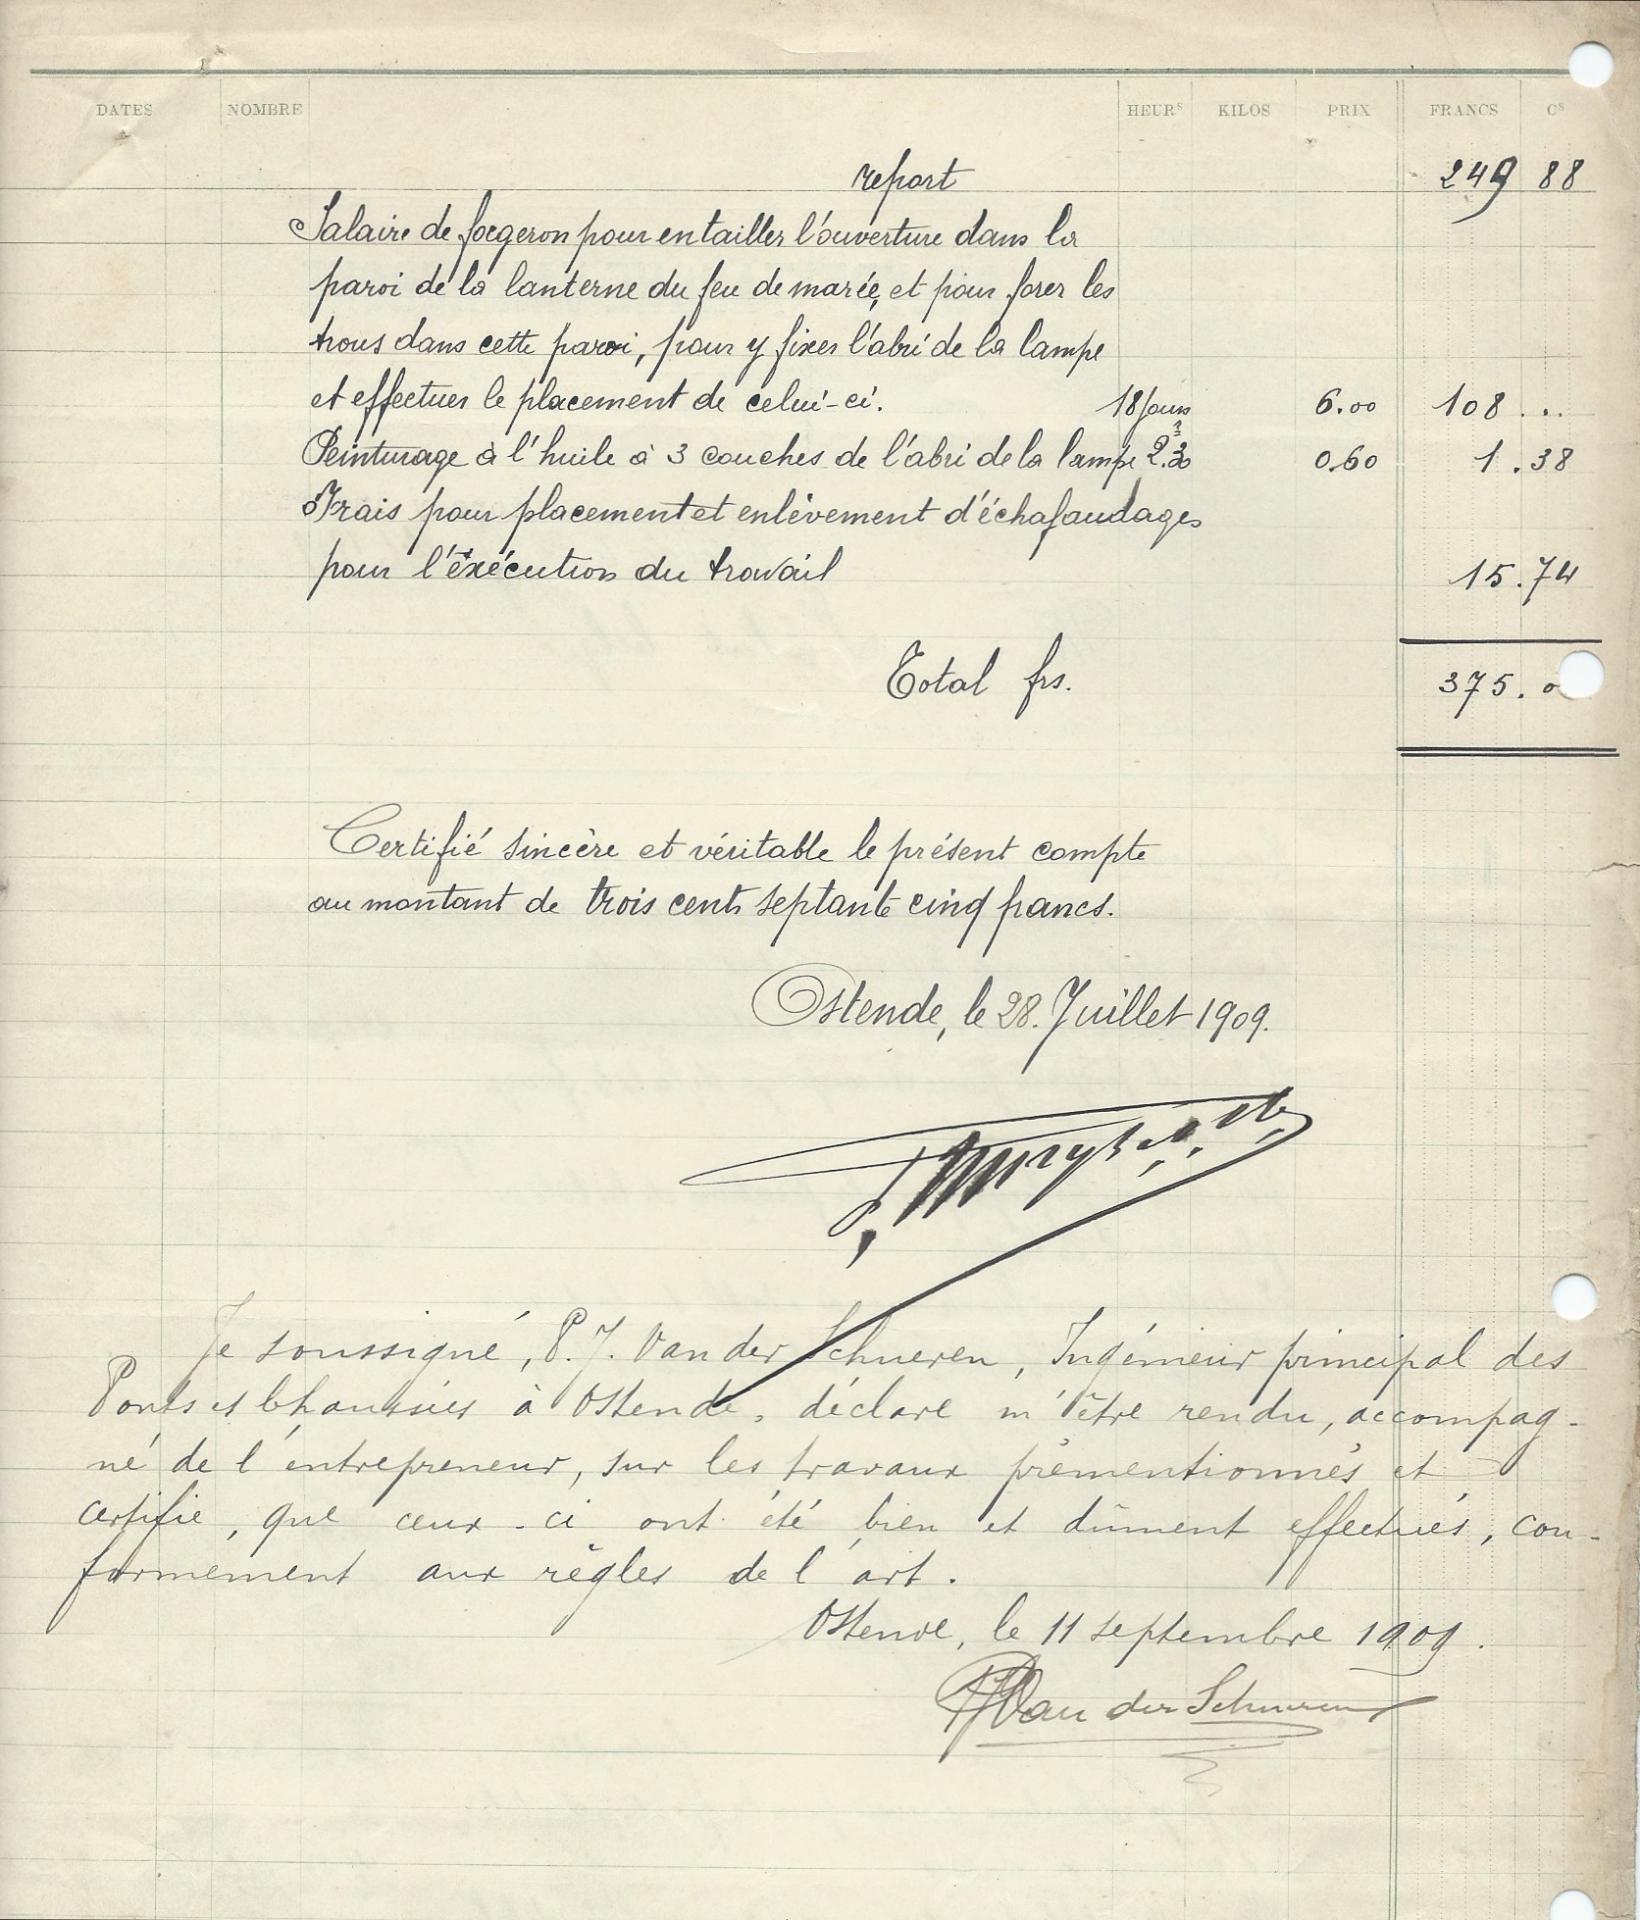 DATES NOMBRE HEURS KILOS PRIX FRANCS CS
report 249 88
Salaire de forgeron pour entailler l'ouverture dans la
paroi de la lanterne du feu de marée, et pour forer les
trous dans cette paroi, pour y fixer l'abri de la lampe
et effectuer le placement de celui-ci. 18 jours 6.00 108 . ..
Peinturage à l'huile à 3 couches de l'abri de la lampe 2.30 0.60 1.38
Frais pour placement et enlèvement d'échafaudages
pour l'éxécution du travail 15.74
Total frs. 375.0
Certifié sincère et véritable le présent compte
au montant de trois cent septante cinq francs.
Ostende, le 28. Juillet 1909.
Je soussigné, P.J. Van der Schueren, Ingénieur principal des
Ponts et Chaussées à Ostende, déclare m'être rendu, accompag-
né de l'entrepreneur, sur les travaux prémentionnés et
certifie, que ceux-ci ont été bien et dûment effectués, con-
formément aux règles de l'art.
Ostende, le 11 septembre 1909.
PJVan der Schueren